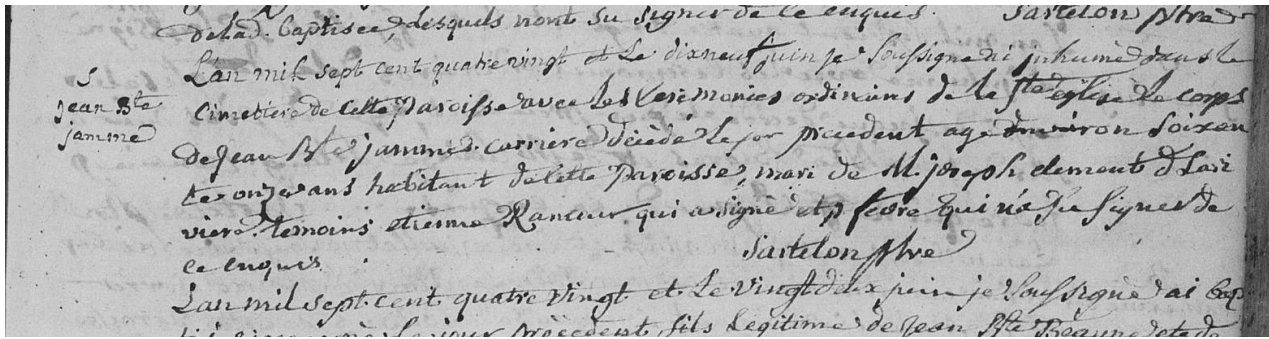 delad. baptisée, lesquels nont su signer de ce enquis. Sartelon ptre
L'an mil sept cent quatre vingt et Le dixneuf juin je Soussigné ai inhumé dans le
S
jean Bte
jamme
Cimetière de Cette Paroisse avec les Ceremonies ordinaires de la Ste église Le corps
de jean Bte jamme d. carrière décédé Le jor précédent agé denviron Soixen
te onze ans habitant de Cette Paroisse, mari de M. joseph clement d Lari
viere. temoins etienne Rancur qui a signé et p favre qui na su signer de
ce enquis. Sartelon ptre
L'an mil sept. cent quatre vingt et Le vingt deux juin je Soussigné ai bap
Le jour précédent, fils Légitime de jean Bte Béaune et de